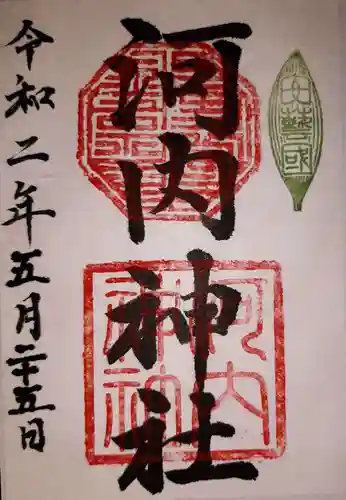 河内神社
河内
神社
令和二年五月二十五日